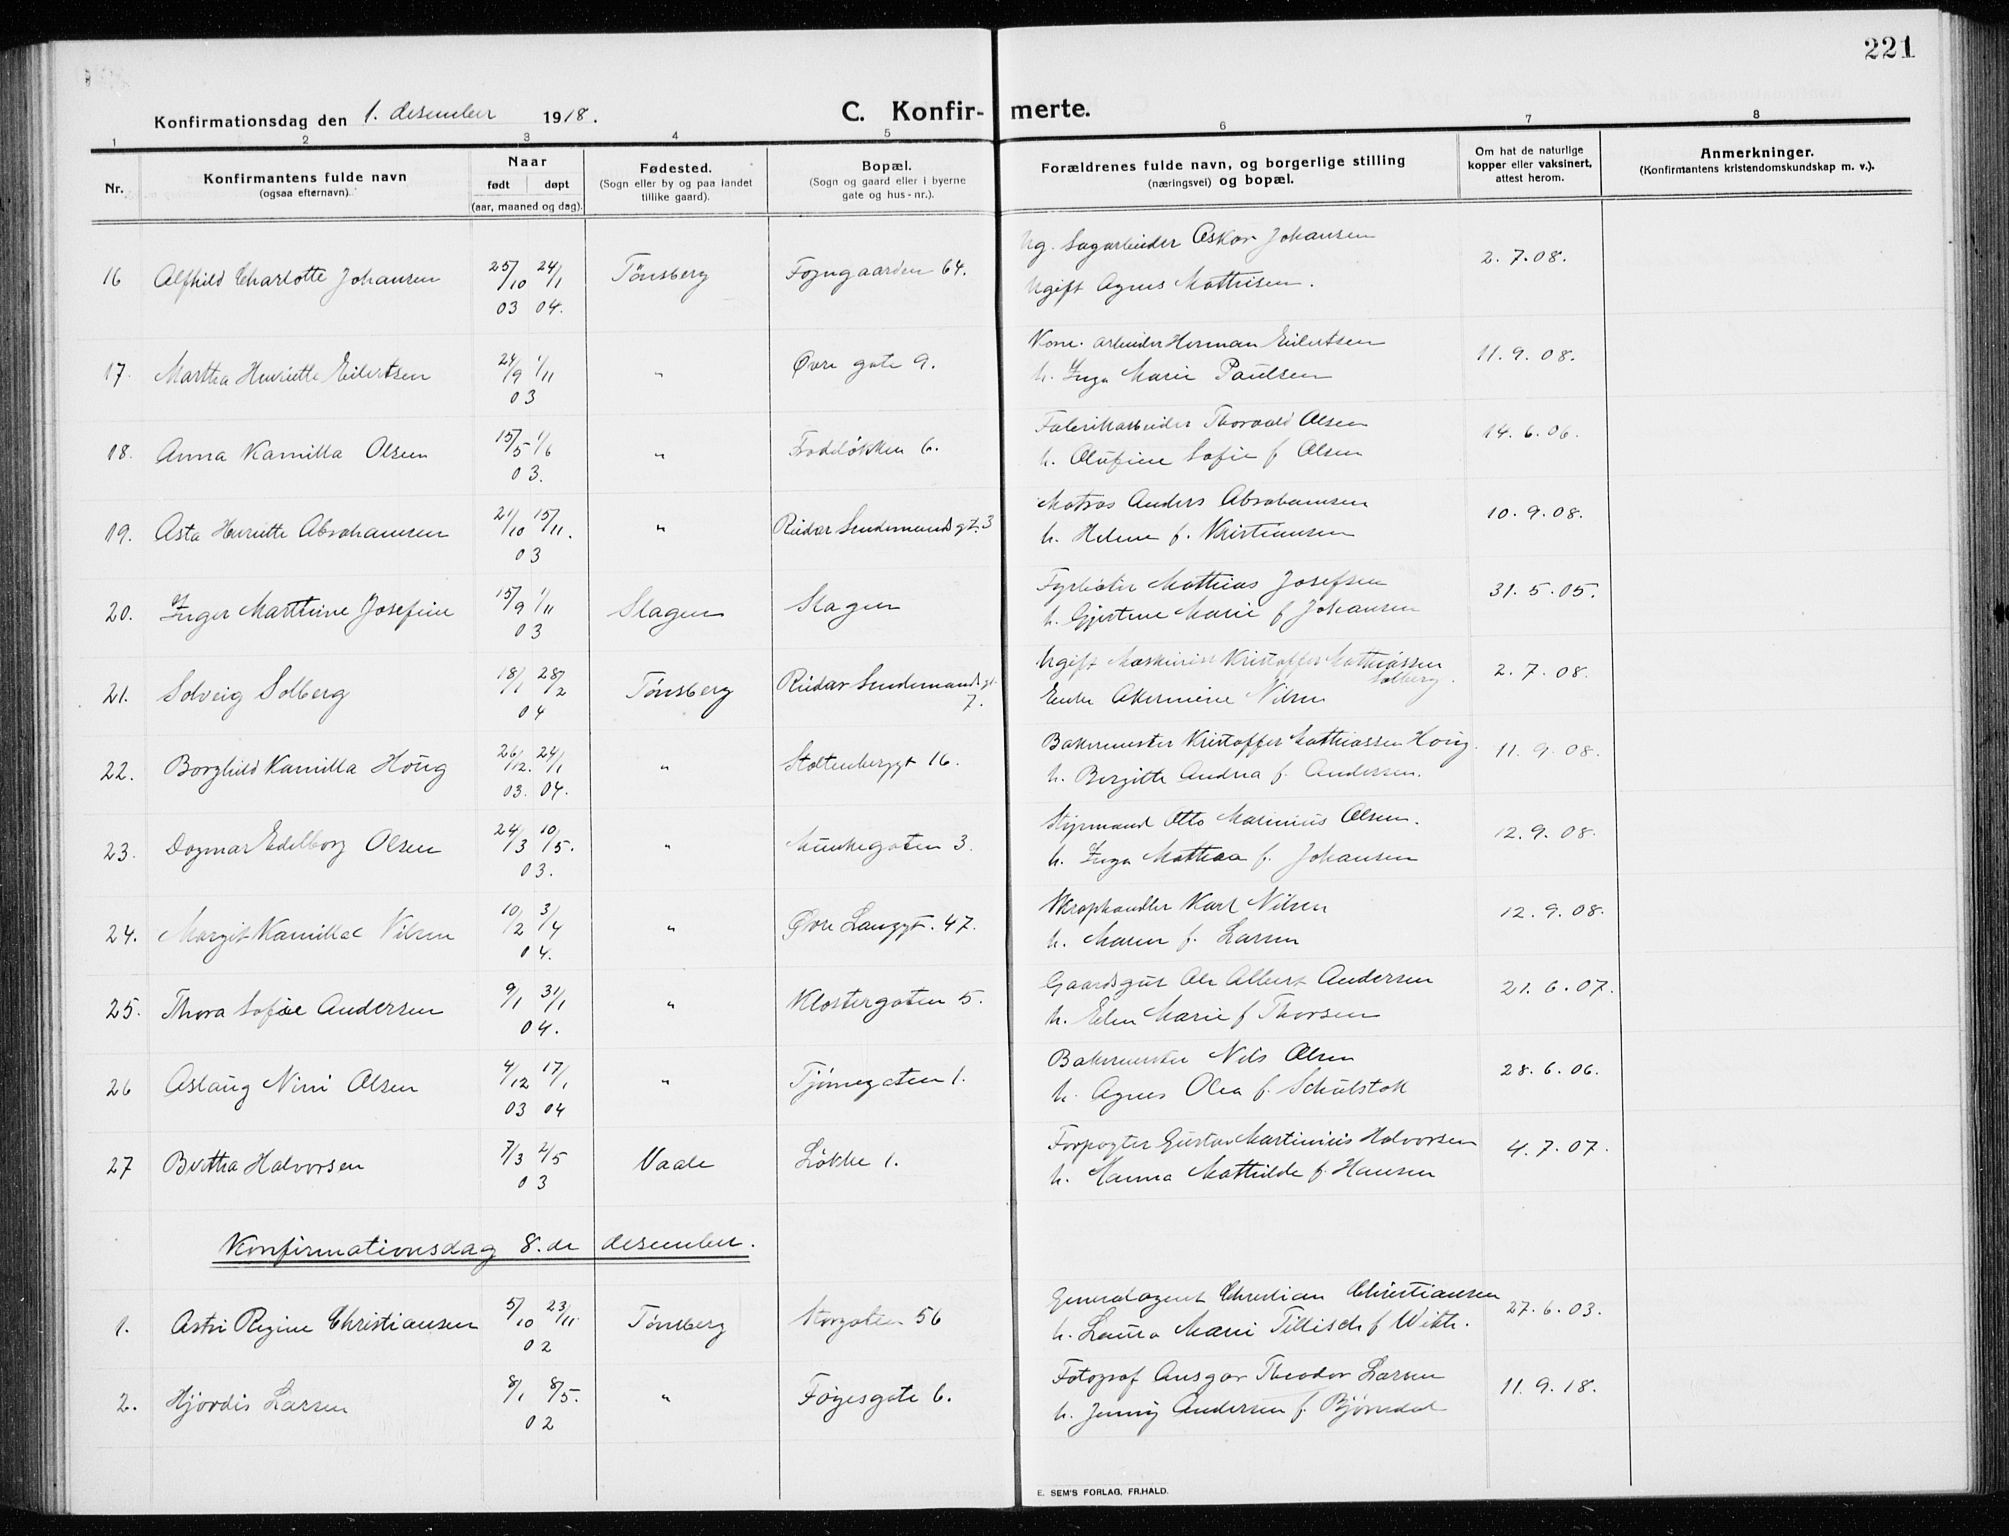 221
Konfirmationsdag den 1. desember 1918.
C. Konfirmerte.
1 2 3 4 5 6 7 8
Nr.
Konfirmantens fulde navn
(ogsaa efternavn).
Naar
født døpt
(aar, maaned og dag).
Fødested.
(Sogn eller by og paa landet
tillike gaard).
Bopæl.
(Sogn og gaard eller i byerne
gate og hus-nr.).
Forældrenes fulde navn, og borgerlige stilling
(næringsvei) og bopæl.
Om hat de naturlige
kopper eller vaksinert,
attest herom.
Anmerkninger.
(Konfirmantens kristendomskundskap m. v.).
16 Alfhild Charlotte Johansen 25/10 03 24/1 04. Tönsberg Foyngaarden 64. Ug. Sagarbeider Askar Johansen
Ugift Agnes Mathisen. 2.7.08.
17. Martha Henriette Eilertsen 24/9 1/11 03 " Øvre gate 9. arbeider Herman Eilertsen
h. Inga Marie Paulsen 11.9.08.
18. Anna Kamilla Olsen 15/5 1/6 03. " Fodeløkken 6. Fabrikarbeider Thorvald Olsen
h. Olufine Sofie f Olsen 14.6.06.
19. Asta Henriette Abrahamsen 21/10 15/11. 03 " Reidar Sendemands gt. 3 Matros Anders Abrahamsen
h. Helene f. Kristiansen 10.9.08.
20. Inger Marthine Josefine 15/9 1/11 03 Slagen Slagen Fyrbøter Mathias Josefsen
h. Gjertine Marie f Johansen 31.5.05.
21. Solveig Solberg 18/1 28/2 04 Tönsberg Reidar Sendemands gt. 7. Ugift Maskinist Kristoffer Mathiassen Solberg.
Enke Nilsen 2.7.08.
22. Borghild Kamilla Houg 26/12. 03. 24/1 04. " Stoltenberggt 16. Bakermester Kristoffer Mathiassen Houg.
h. Birgitte Andrea f. Andersen. 11.9.08.
23. Dagmar Edelborg Olsen 24/3 10/5. 03. " Munkegaten 3. Styrmand Otto Marinius Olsen.
h. Inga Mathea f. Johansen 12.9.08.
24. Margit Kamilla Nilsen 10/2 3/4 04. " Øvre Langgt. 47. Skraphandler Karl Nilsen
h. Maren f. Larsen 12.9.08.
25. Thora Sofie Andersen 9/1 31/1 04. " Klostergaten 5. Gaardsgut Ole Albert Andersen
h. Elen Marie f Thorsen 21.6.07.
26 Aslaug Nini Olsen 4/12 03 17/1 04 " Tjömegaten 1. Bakermester Nils Olsen
h. Agnes Olea f. Schulstok 28.6.06.
27 Bertha Halvorsen 7/3 2/5 03 Vaale Løkke 1. Forpagter Gustav Martinius Halvorsen
h. Hanna Mathilde f. Hansen 4.7.07.
Konfirmationsdag 8. de desember.
1. Astri Regine Christiansen 5/10 23/11. 02 Tönsberg Storgaten 56 Generalagent Christian Christiansen
h. Laura Marie Tillisch f Witth. 27.6.03.
2. Hjördis Larsen 8/1 8/5. 02 " Føyesgate 6. Fotograf Ansgar Theodor Larsen
h. Jenny Andersen f. Bjørndal 11.9.18.
E. SEM'S FORLAG, FR.HALD.